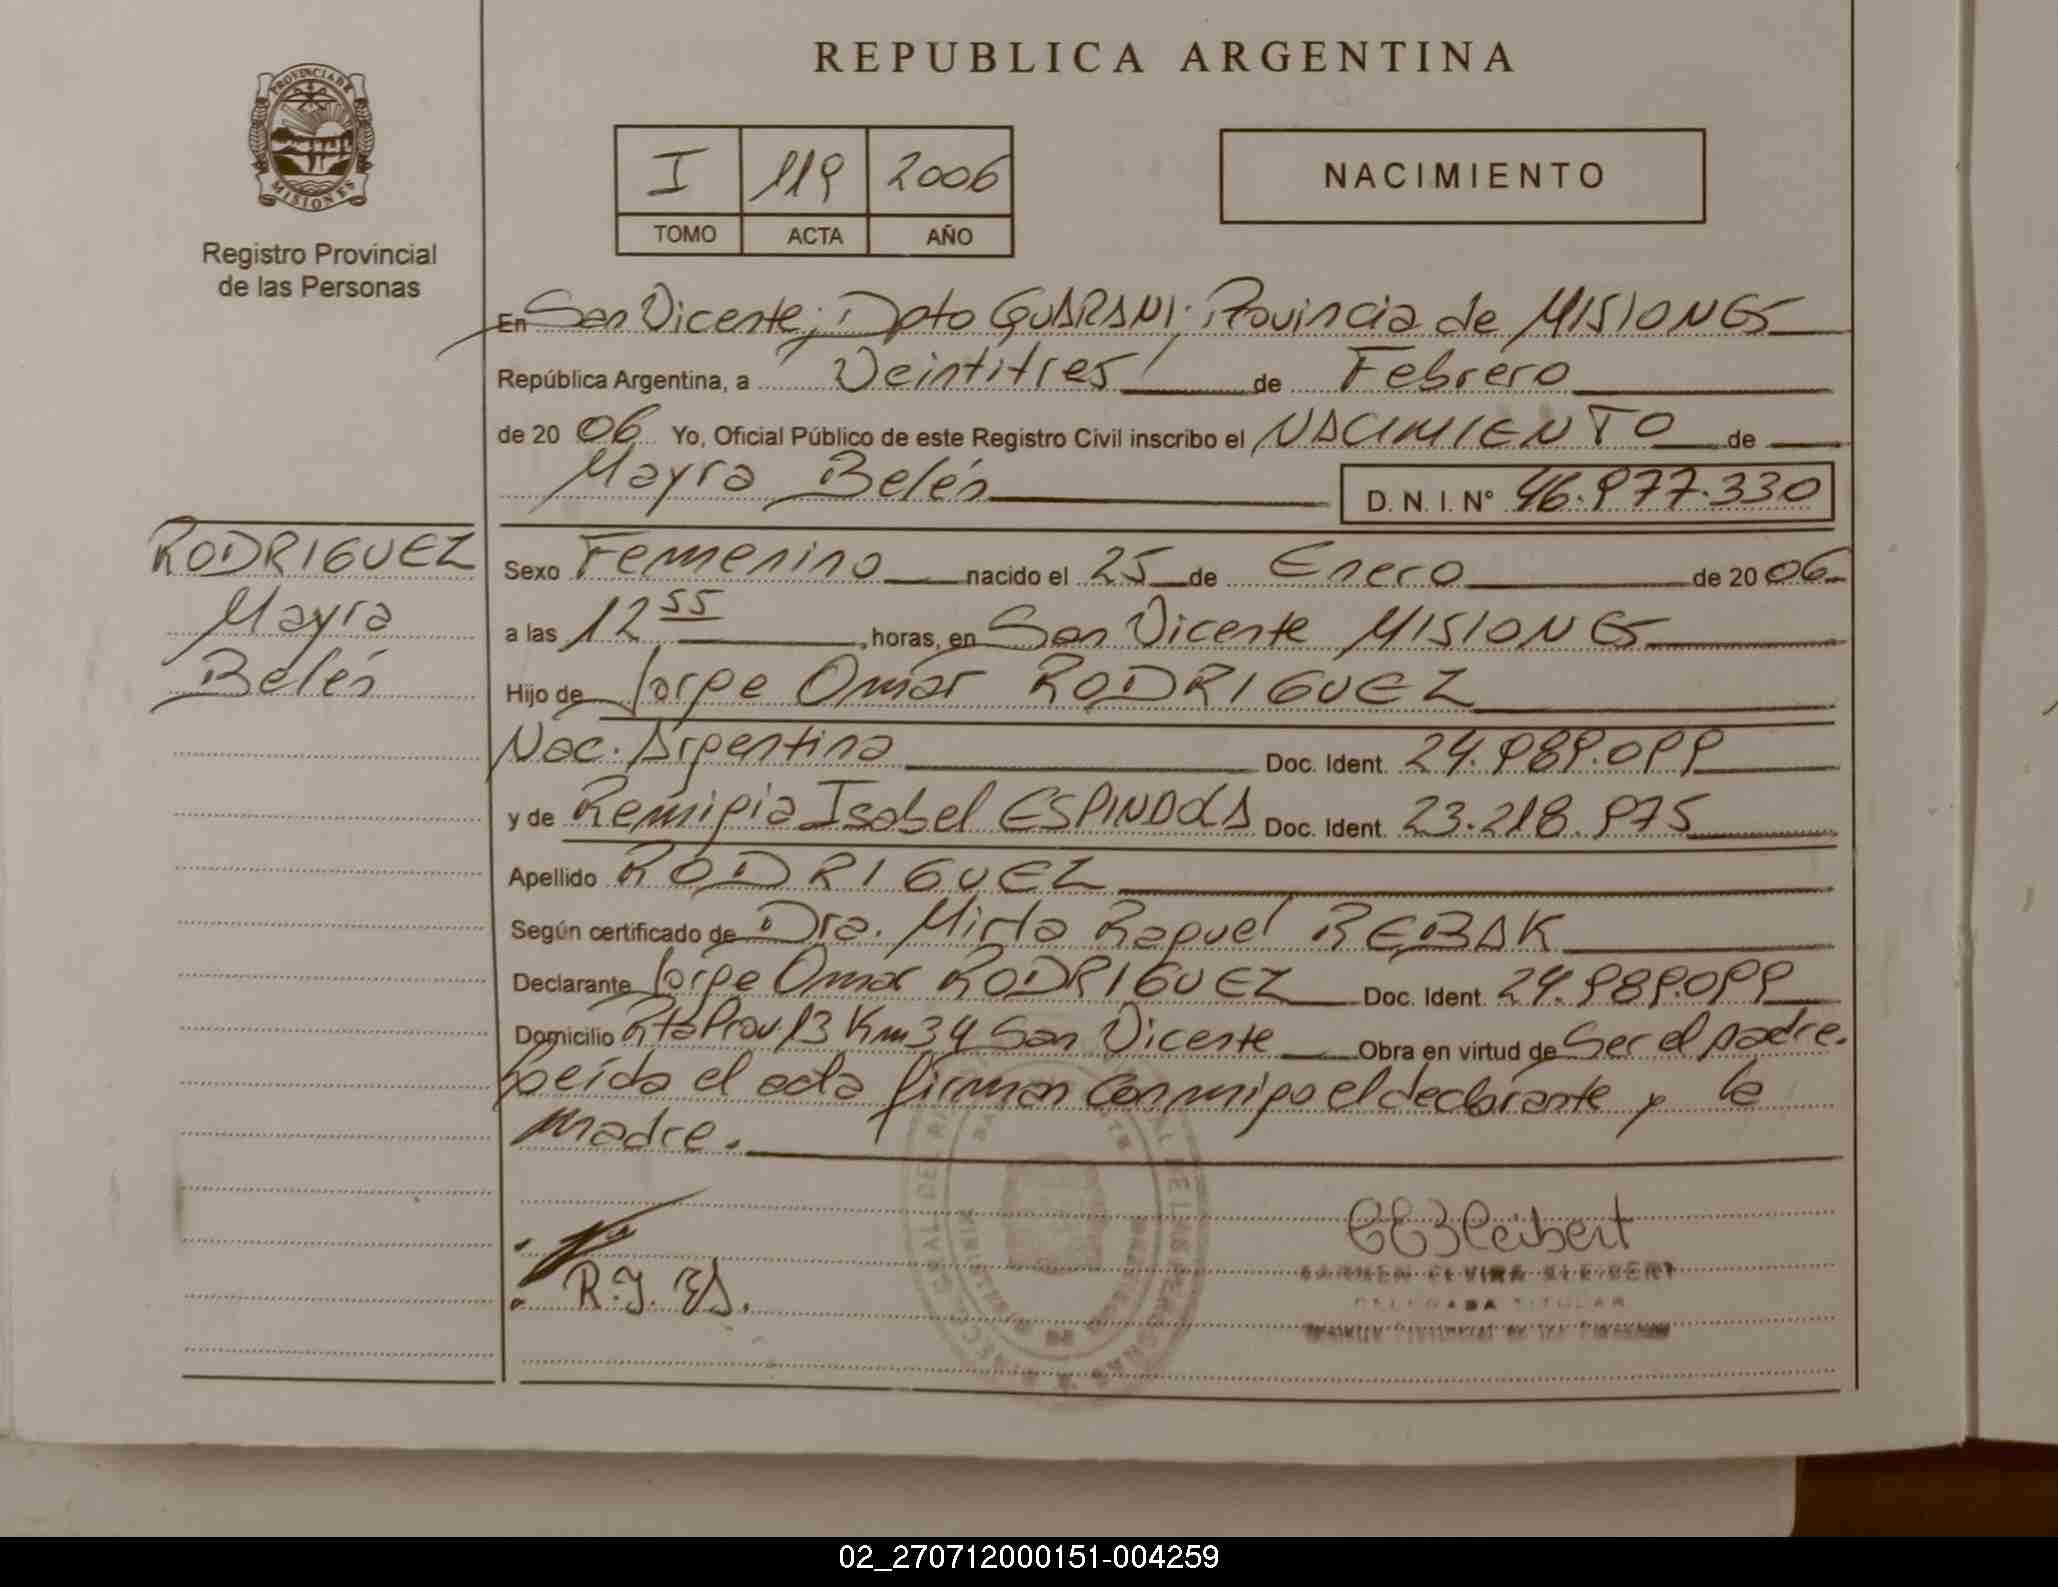 REPUBLICA ARGENTINA
PROVINCIA DE
MISIONES
Registro Provincial
de las Personas
I 119 2006
TOMO ACTA AÑO
NACIMIENTO
En San Vicente; Dpto GUARANI; Provincia de MISIONES
República Argentina, a Veintitres de Febrero
de 20 06 Yo, Oficial Público de este Registro Civil inscribo el NACIMIENTO de
Mayra Belén D. N. I. N° 46.977.330
RODRIGUEZ
Mayra
Belén
Sexo Femenino nacido el 25 de Enero de 20 06
a las 12 55 , horas, en San Vicente MISIONES
Hijo de Jorge Omar RODRIGUEZ
Nac. Argentina Doc. Ident. 24.989.099
y de Remigia Isabel ESPINDOLA Doc. Ident. 23.218.975
Apellido RODRIGUEZ
Según certificado de Dra. Mirta Raquel REBAK
Declarante Jorge Omar RODRIGUEZ Doc. Ident. 24.989.099
Domicilio Rta Prov. 13 Km 34 San Vicente Obra en virtud de Ser el padre.
Leída el acta firman conmigo el declarante y la
madre.
R.I. ES.
CEBleibert
CARMEN ELVIRA BLEIBERT
DELEGADA TITULAR
02_270712000151-004259